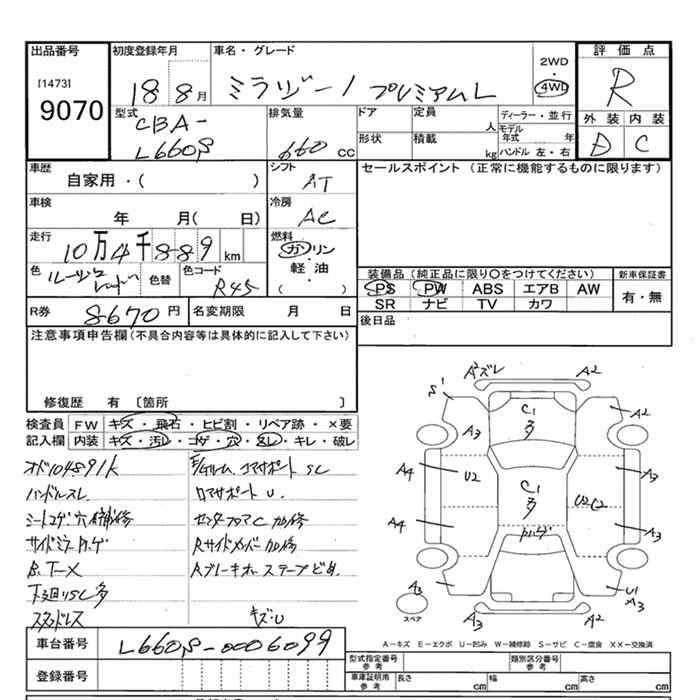 出品番号 初度登録年月 車名・グレード 2WD・4WD 評価点
[1473]
9070 18 8月 ミラジーノ プレミアムL R
型式 排気量 ドア 定員 人 ディーラー・並行 外装 内装
CBA-
L660S 660 CC 形状 積載 kg モデル年式 年 ハンドル 左・右 D C
車歴 シフト セールスポイント (正常に機能するものに限ります)
自家用・( ) AT
車検 冷房
年 月( 日) AC
走行 燃料
10万4千889 km ガソリン・軽油 ( )
色 色替 色コード 装備品(純正品に限り〇をつけてください) 新車保証書
R45 PS PW ABS エアB AW 有・無
SR ナビ TV カワ
R券 8670円 名変期限 月 日 後日品
注意事項申告欄(不具合内容等は具体的に記入して下さい)
修復歴 有 [箇所 ]
検査員 FW キズ・飛石・ヒビ割・リペア跡・×要
記入欄 内装 キズ・汚レ・コゲ・穴・スレ・キレ・破レ
ハンドルスレ
シートコゲ穴補修
下廻りSC多
スタッドレス
コアサポート SC
ロアサポート U.
センターフロアC 加修
Rサイドメンバー加修
キズ・U
A2 A2
S' A2
C1 多
A3 A3
A4 U2 C1 多 U2 C2
A4 A3
A3 U1
A3 A2 A2 A3
スペア
A-キズ E-エクボ U-凹み W-補修跡 S-サビ C-腐食 XX-交換済
車台番号 L660S-0006099
登録番号
型式指定番号 参考 類別区分番号 参考
車庫証明用 参考 長さ cm 幅 cm 高さ cm